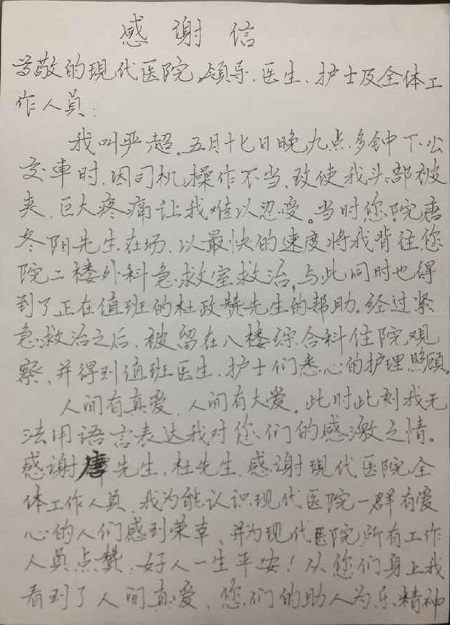 感谢信
尊敬的现代医院领导、医生、护士及全体工
作人员:
我叫严超,五月十七日晚九点多钟下公
交车时,因司机操作不当,致使我头部被
夹,巨大疼痛让我难以忍受。当时您院唐
冬阳先生在场,以最快的速度将我背往您
院二楼外科急救室救治,与此同时也得
到了正在值班的杜政赞先生的帮助。经过紧
急救治之后,被留在八楼综合科住院观
察,并得到值班医生、护士们悉心的护理照顾。
人间有真爱,人间有大爱。此时此刻我无
法用语言表达我对您们的感激之情。
感谢唐先生、杜先生,感谢现代医院全
体工作人员,我为能认识现代医院一群有爱
心的人们感到荣幸,并为现代医院所有工作
人员点赞,好人一生平安!从您们身上我
看到了人间真爱,您们的助人为乐精神